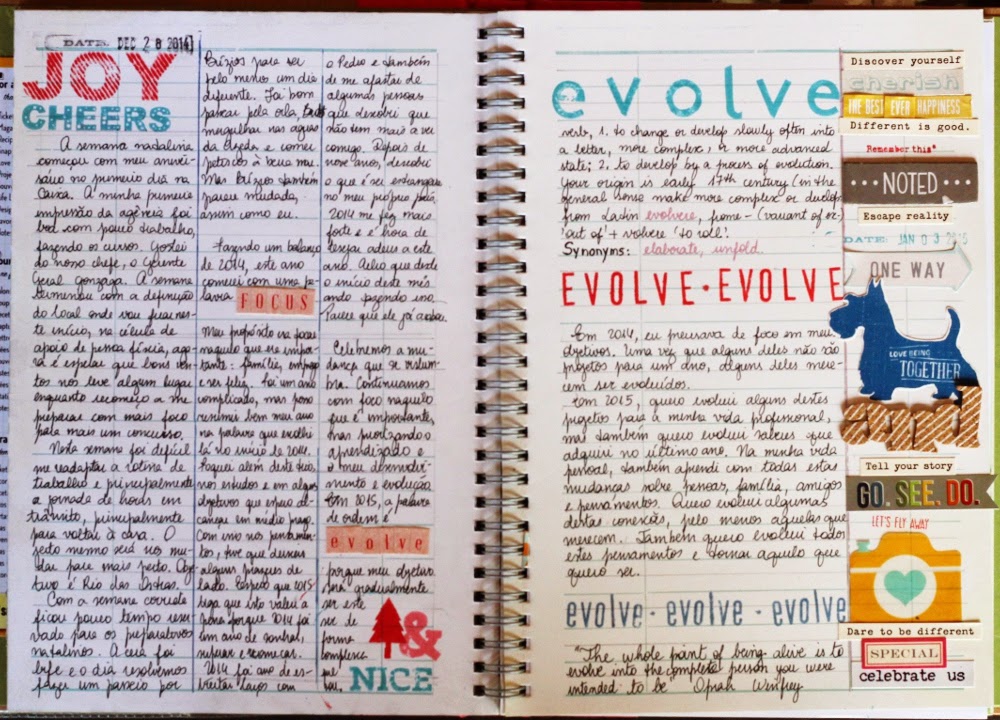 DATE: DEC 28 2014
JOY
CHEERS
A semana natalina
começou com meu aniver-
sário no primeiro dia na
Caixa. A minha primeira
impressão da agência foi
boa com pouco trabalho,
fazendo os cursos. Gostei
do nosso chefe, o Gerente
Geral Gonzaga. A semana
terminou com a definição
do local onde vou ficar nes-
te início, na célula de
apoio de pessoa física, ago-
ra é esperar que bons ven-
tos nos leve algum lugar
enquanto recomeço a me
preparar com mais foco
pela mais um concurso.
Nesta semana foi difícil
me readaptar à rotina de
trabalho e principalmente
a jornada de horas em
trânsito, principalmente
para voltar à casa. O
jeito mesmo será nos mu-
dar para mais perto. Ob-
jetivo é Rio das Ostras.
Com a semana corrida
ficou pouco tempo reser-
vado para os preparativos
natalinos. A ceia foi
leve e o dia resolvemos
fazer um passeio por
Búzios para ser
pelo menos um dia
diferente. Foi bom
passear pela orla,
mergulhar nas águas
da Azeda e comer
petiscos à beira mar.
Mas Búzios também
parece mudada,
assim como eu.
Fazendo um balanço
de 2014, este ano
comecei com uma pa-
lavra FOCUS
Meu propósito era focar
naquilo que era impor-
tante: família, emprego
e ser feliz. Foi um ano
complicado, mas posso
resumir bem meu ano
na palavra que escolhi
lá no início de 2014.
Foquei além deste trio,
nos estudos e em alguns
objetivos que espero al-
cançar em médio prazo.
Com isso nos pensamen-
tos, tive que deixar
alguns projetos de
lado. Espero que 2015
diga que isto valeu a
pena porque 2014 foi
um ano de sonhar,
superar e começar.
2014 foi ano de es-
treitar laços com
o Pedro e também
de me afastar de
algumas pessoas
que descobri que
não tem mais a ver
comigo. Depois de
nove anos, descobri
o que é ser estrangeiro
no meu próprio país.
2014 me fez mais
forte e é hora de
desejar adeus a este
ano. Acho que desde
o início deste mês
ando fazendo isso.
Parece que ele já acabou.
Celebremos a mu-
dança que se vislum-
bra. Continuamos
com foco naquilo
que é importante,
mas priorizando o
aprendizado e
o meu desenvolvi-
mento e evolução.
Em 2015, a palavra
de ordem é
evolve
porque meu objetivo
será gradualmente
ser este
ser de
forma
complexa
&
NICE
evolve
verb, 1. to change or develop slowly often into
a better, more complex, or more advanced
state; 2. to develop by a process of evolution.
Your origin is early 17th century (in the
general sense make more complex or develop
from Latin evolvere, from e- (variant of ex-)
'out of' + volvere 'to roll'.
Synonyms: elaborate, unfold.
EVOLVE • EVOLVE
Em 2014, eu precisava de foco em meus
objetivos. Uma vez que alguns deles não são
projetos para um ano, alguns deles mere-
cem ser evoluídos.
Em 2015, quero evoluir alguns destes
projetos para a minha vida profissional,
mas também quero evoluir saberes que
adquiri no último ano. Na minha vida
pessoal, também aprendi com todas estas
mudanças sobre pessoas, família, amigos
e pensamentos. Quero evoluir algumas
destas conexões, pelo menos aquelas que
merecem. Também quero evoluir todos
estes pensamentos e tornar aquilo que
quero ser.
evolve • evolve • evolve
"The whole point of being alive is to
evolve into the complete person you were
intended to be" Oprah Winfrey
Discover yourself
cherish
THE BEST EVER HAPPINESS
Different is good.
Remember this*
•••NOTED•••
Escape reality
DATE: JAN 03 2015
ONE WAY
LOVE BEING
TOGETHER
and
Tell your story
GO. SEE. DO.
LET'S FLY AWAY
Dare to be different
SPECIAL
celebrate us